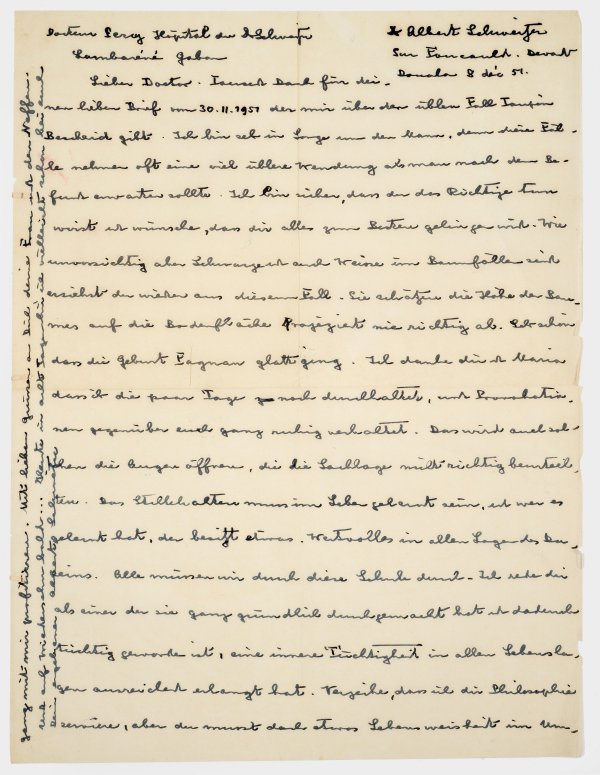 Docteur Percy Hôpital du Dr Schweitzer
Lambaréné Gabon
Dr Albert Schweitzer
Sur Foucauld. Devant
Douala 8 déc 51.
Lieber Doctor. Tausend Dank für dei-
nen lieben Brief vom 30.11.1951 der mir über den üblen Fall
Bescheid gibt. Ich bin sehr in Sorge um den Mann, denn diese Fäl-
le nehmen oft eine viel üblere Wendung als man nach dem Be-
fund erwarten sollte. Ich bin sicher, dass du das Richtige tun
wirst u wünsche, dass dir alles zum Besten gelingen wird. Wie
unvorsichtig aber Schwarze u auch Weisse im Baumfällen sind
ersiehst du wieder aus diesem Fall. Sie schätzen die Höhe des Bau-
mes auf die Bodenfläche projeziert nie richtig ab. Sehr schön
dass die Geburt Fagnan glatt ging. Ich danke dir u Maria
dass ihr die paar Tage noch durchhaltet, und Provokatio-
nen gegenüber euch ganz ruhig verhaltet. Das wird auch sol-
chen die Augen öffnen, die die Sachlage nicht richtig beurteil-
ten. Das Stillehalten muss im Leben gelernt sein, u wer es
gelernt hat, der besitzt etwas Wertvolles in allen Lagen des Da-
seins. Alle müssen wir durch diese Schule durch. Ich rede dir
als einer der sie ganz gründlich durchgemacht hat u dadurch
tüchtig geworden ist, eine innere Tüchtigkeit in allen Lebensla-
gen ausreichend erlangt hat. Verzeihe, dass ich dir Philosophie
serviere, aber du musst doch etwas Lebensweisheit im Um-
gang mit mir profitieren. Mit lieben Grüssen an Dich deine Frau u den Neffen.
und auf Wiedersehn bald... Heute in acht Tagen bin ich vielleicht schon bei euch
Dein ergebener Albert Schweitzer